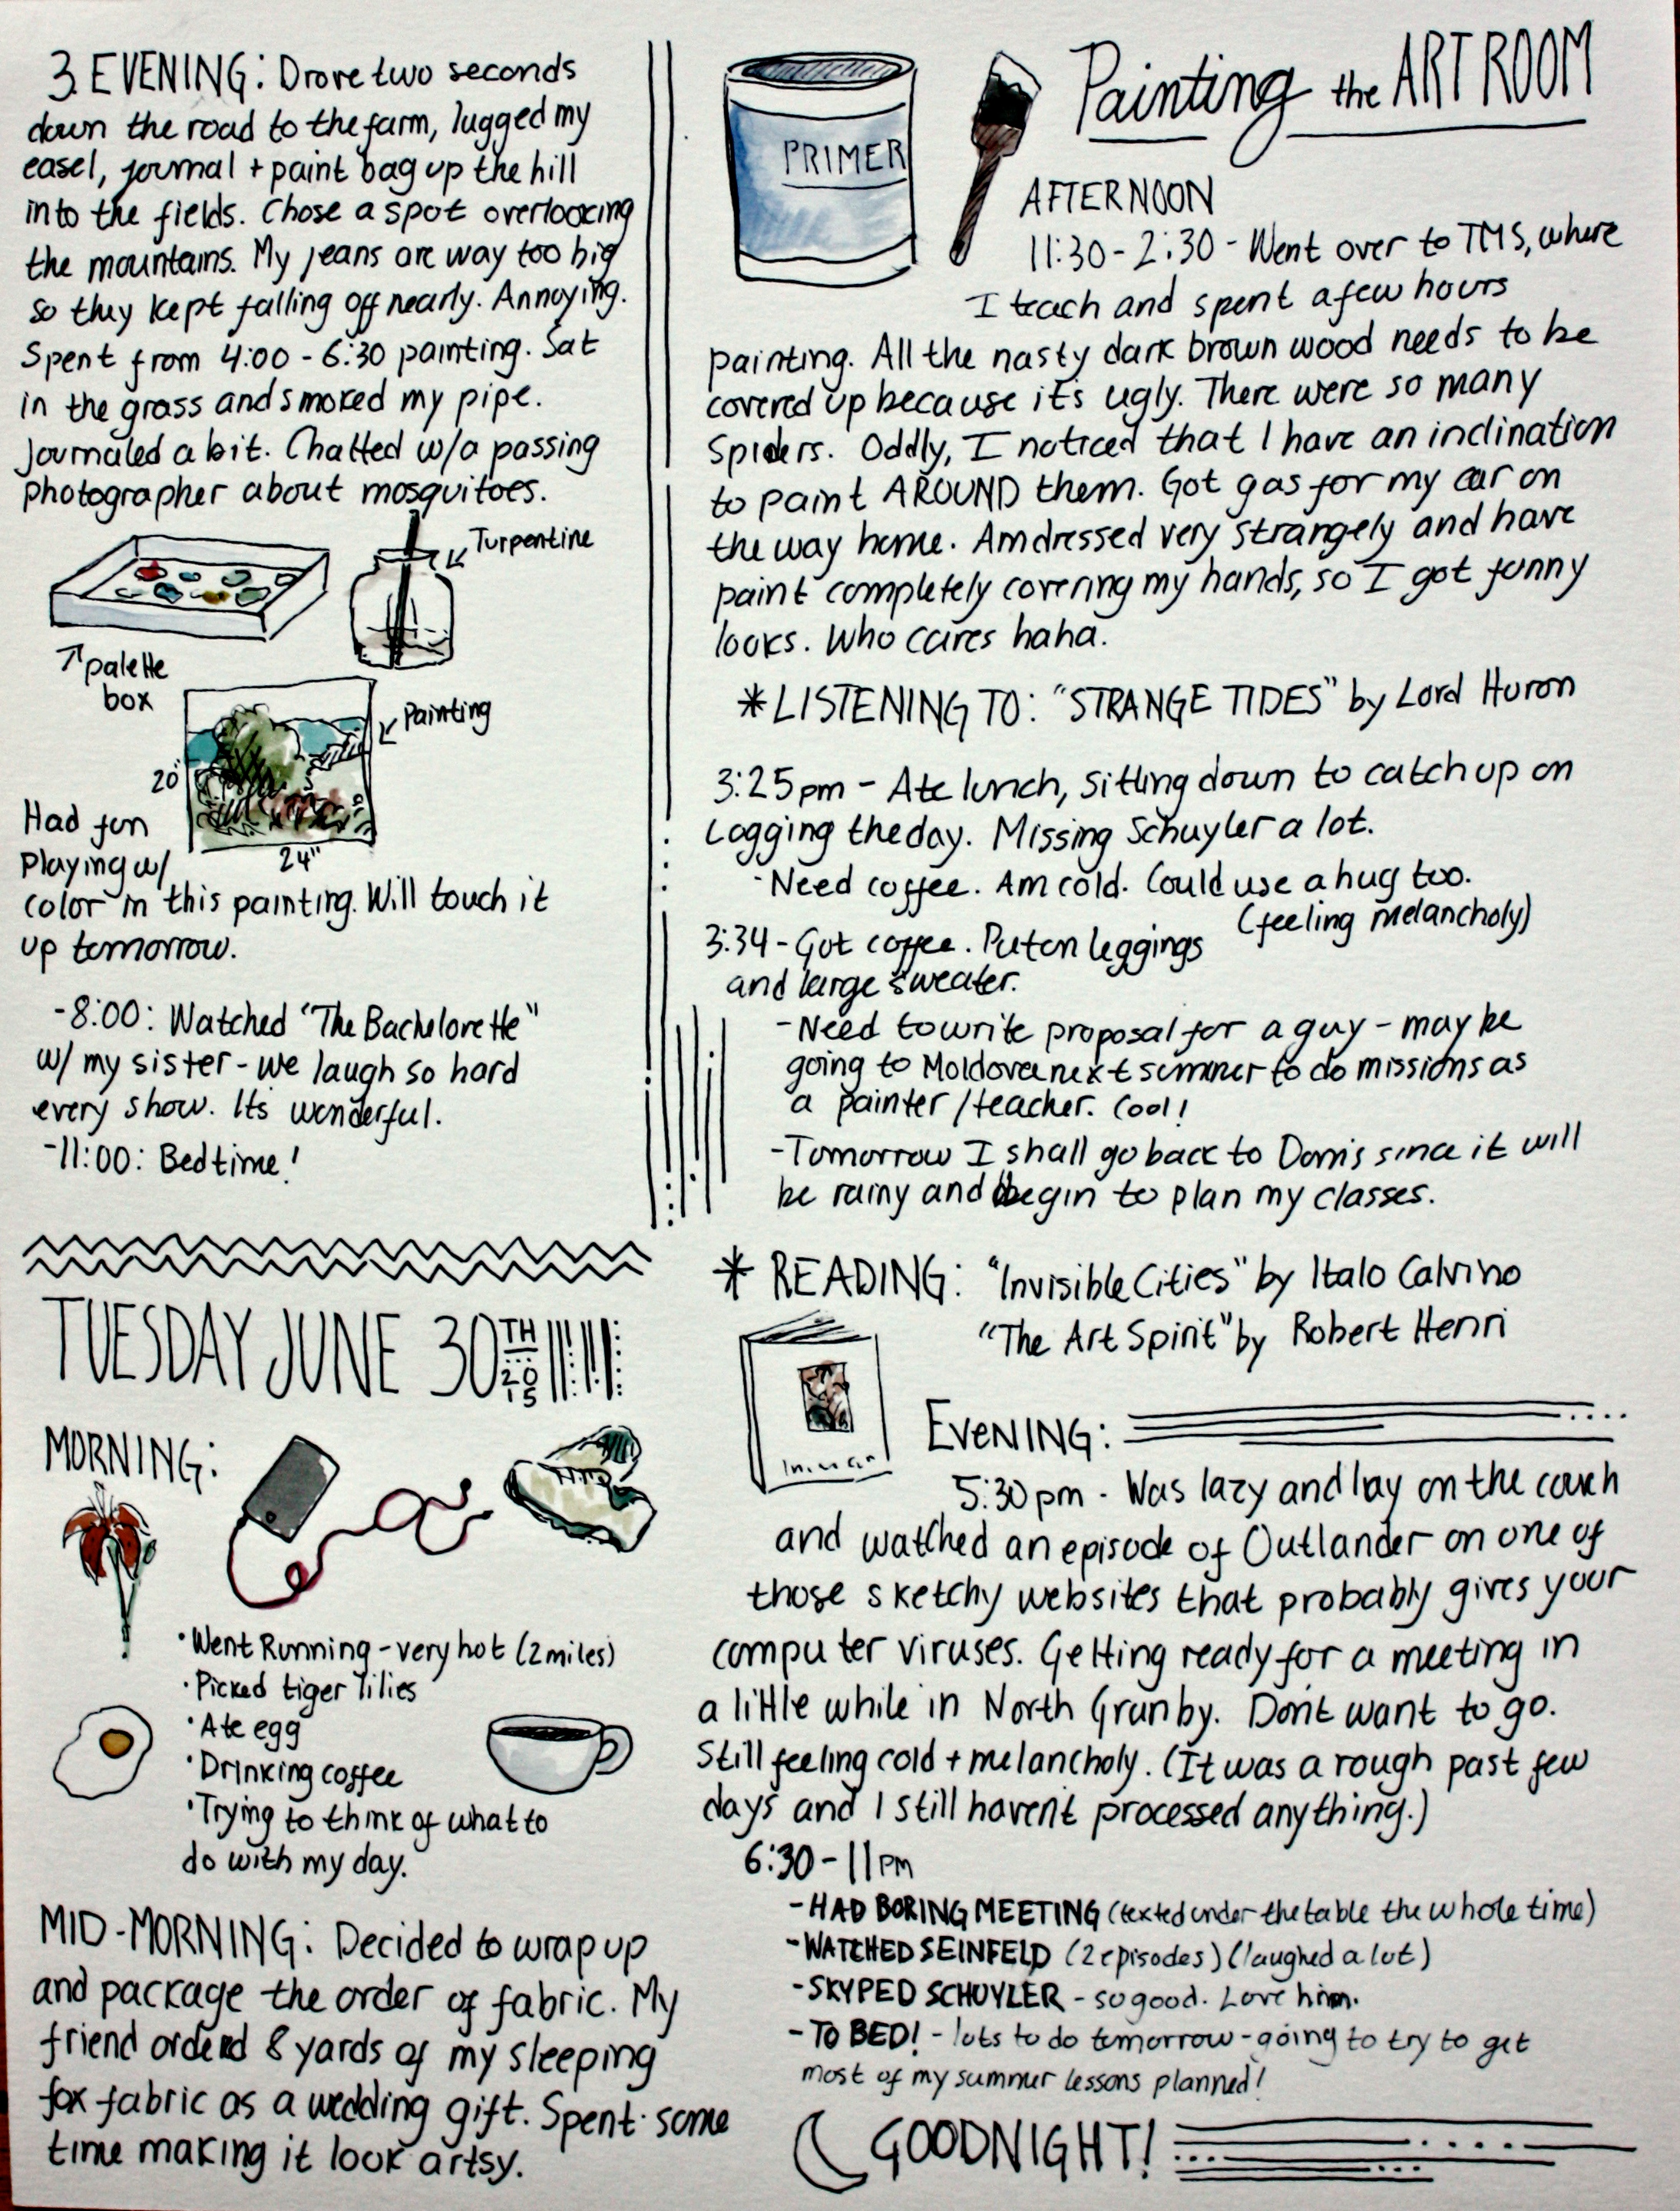 3. EVENING: Drove two seconds
down the road to the farm, lugged my
easel, journal + paint bag up the hill
into the fields. Chose a spot overlooking
the mountains. My jeans are way too big
so they kept falling off nearly. Annoying.
Spent from 4:00 - 6:30 painting. Sat
in the grass and smoked my pipe.
Journaled a bit. Chatted w/a passing
photographer about mosquitoes.
Turpentine
palette
box
Painting
20"
24"
Had fun
Playing w/
color in this painting. Will touch it
up tomorrow.
-8:00: Watched "The Bachelorette"
w/ my sister - we laugh so hard
every show. Its wonderful.
-11:00: Bedtime!
TUESDAY JUNE 30TH 2015
MORNING:
·Went Running - very hot (2 miles)
·Picked tiger lilies
·Ate egg
·Drinking coffee
·Trying to think of what to
do with my day.
MID-MORNING: Decided to wrap up
and package the order of fabric. My
friend orderd 8 yards of my sleeping
fox fabric as a wedding gift. Spent some
time making it look artsy.
Painting the ART ROOM
PRIMER
AFTERNOON
11:30 - 2:30 - Went over to TMS, where
I teach and spent a few hours
painting. All the nasty dark brown wood needs to be
covered up because it's ugly. There were so many
Spiders. Oddly, I noticed that I have an inclination
to paint AROUND them. Got gas for my car on
the way home. Am dressed very strangely and have
paint completely covering my hands, so I got funny
looks. Who cares haha.
*LISTENING TO: "STRANGE TIDES" by Lord Huron
3:25pm - Ate lunch, sitting down to catch up on
Logging the day. Missing Schuyler a lot.
-Need coffee. Am cold. Could use a hug too.
(feeling melancholy)
3:34 - Got coffee. Put on leggings
and large sweater.
-Need to write proposal for a guy - may be
going to Moldova next summer to do missions as
a painter/teacher. Cool!
-Tomorrow I shall go back to Dom's since it will
be rainy and begin to plan my classes.
* READING: "Invisible Cities" by Italo Calvino
"The Art Spirit" by Robert Henri
EVENING:
5:30pm - Was lazy and lay on the couch
and watched an episode of Outlander on one of
those sketchy websites that probably gives your
computer viruses. Getting ready for a meeting in
a little while in North Granby. Don't want to go.
Still feeling cold + melancholy. (It was a rough past few
days and I still haven't processed anything.)
6:30 - 11PM
-HAD BORING MEETING (texted under the table the whole time)
-WATCHED SEINFELD (2 episodes) (laughed a lot)
-SKYPED SCHUYLER - so good. Love him.
-TO BED! - lots to do tomorrow - going to try to get
most of my summer lessons planned!
GOODNIGHT!